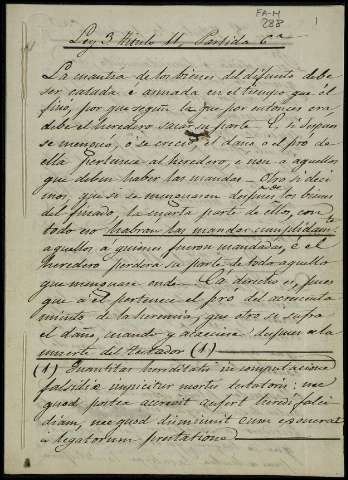 FA-M
288
1
Ley 3ª título 11, Partida 6ª
La cuantia de los bienes del difunto debe
ser catada é asmada en el tiempo que él
finó, por que segun la que por entonces era
debe el heredero sacar su parte É, si despues
se menguó, ó se creció el daño ó el pro de
ella pertenece al heredero, é non á aquellos
que deben haber las mandas — Otro si deci
mos, que si se menguasen despues los bienes
del finado, la cuarta parte de ellos, con
todo no habrian las mandas cumplidam.te
aquellos á quienes fueron mandadas, é el
heredero perderá su parte de todo aquello
que menguasen ende — Ca derecho es, pues
que á él pertenece el pro del acrecenta
miento de la herencia, que otro si sufra
el daño, cuando y acaeciere despues de la
muerte del testador (1)
(1) Quantitas hereditatis in computatione
falsidia inspicitur mortis testatoris: nec
quod postea accrevit aufert heredi falci
diam, nec quod diminuit eum exonerat
a legatorum prestatione